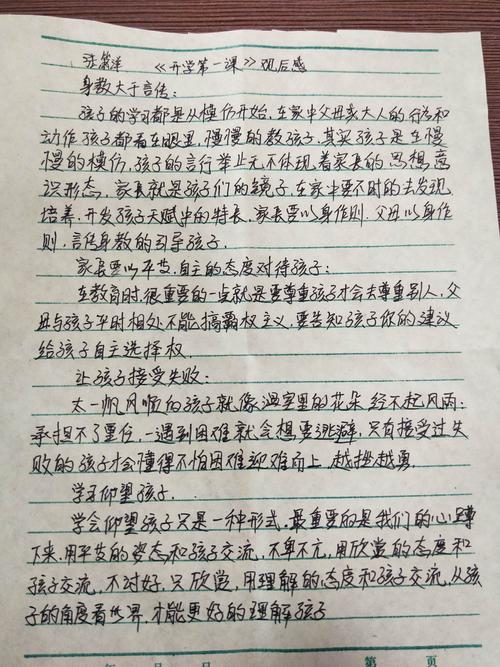 张箫洋 《开学第一课》观后感
身教大于言传：
孩子的学习都是从模仿开始，在家中父母亲大人的行为和
动作，孩子都看在眼里，慢慢的教孩子，其实孩子是在慢
慢的模仿，孩子的言行举止无不体现着家长的思想，意
识形态，家长就是孩子们的镜子，在家中要不时的去发现
培养，开发孩子天赋中的特长，家长要以身作则，父母以身作
则，言传身教的引导孩子。
家长要以平等，自主的态度对待孩子：
在教育时，很重要的一点就是要尊重孩子才会去尊重别人，父
母与孩子平时相处不能搞霸权主义，要告知孩子你的建议
给孩子自主选择权。
让孩子接受失败：
太一帆风顺的孩子就像温室里的花朵经不起风雨；
承担不了重任，一遇到困难就会想要逃避，只有接受过失
败的孩子才会懂得不怕困难，迎难而上，越挫越勇。
学习仰望孩子。
学会仰望孩子只是一种形式，最重要的是我们的心蹲
下来，用平等的姿态和孩子交流，不卑不亢，用欣赏的态度和
孩子交流，不讨好，只欣赏，用理解的态度和孩子交流，从孩
子的角度看世界，才能更好的理解孩子
年 月 日 第 页